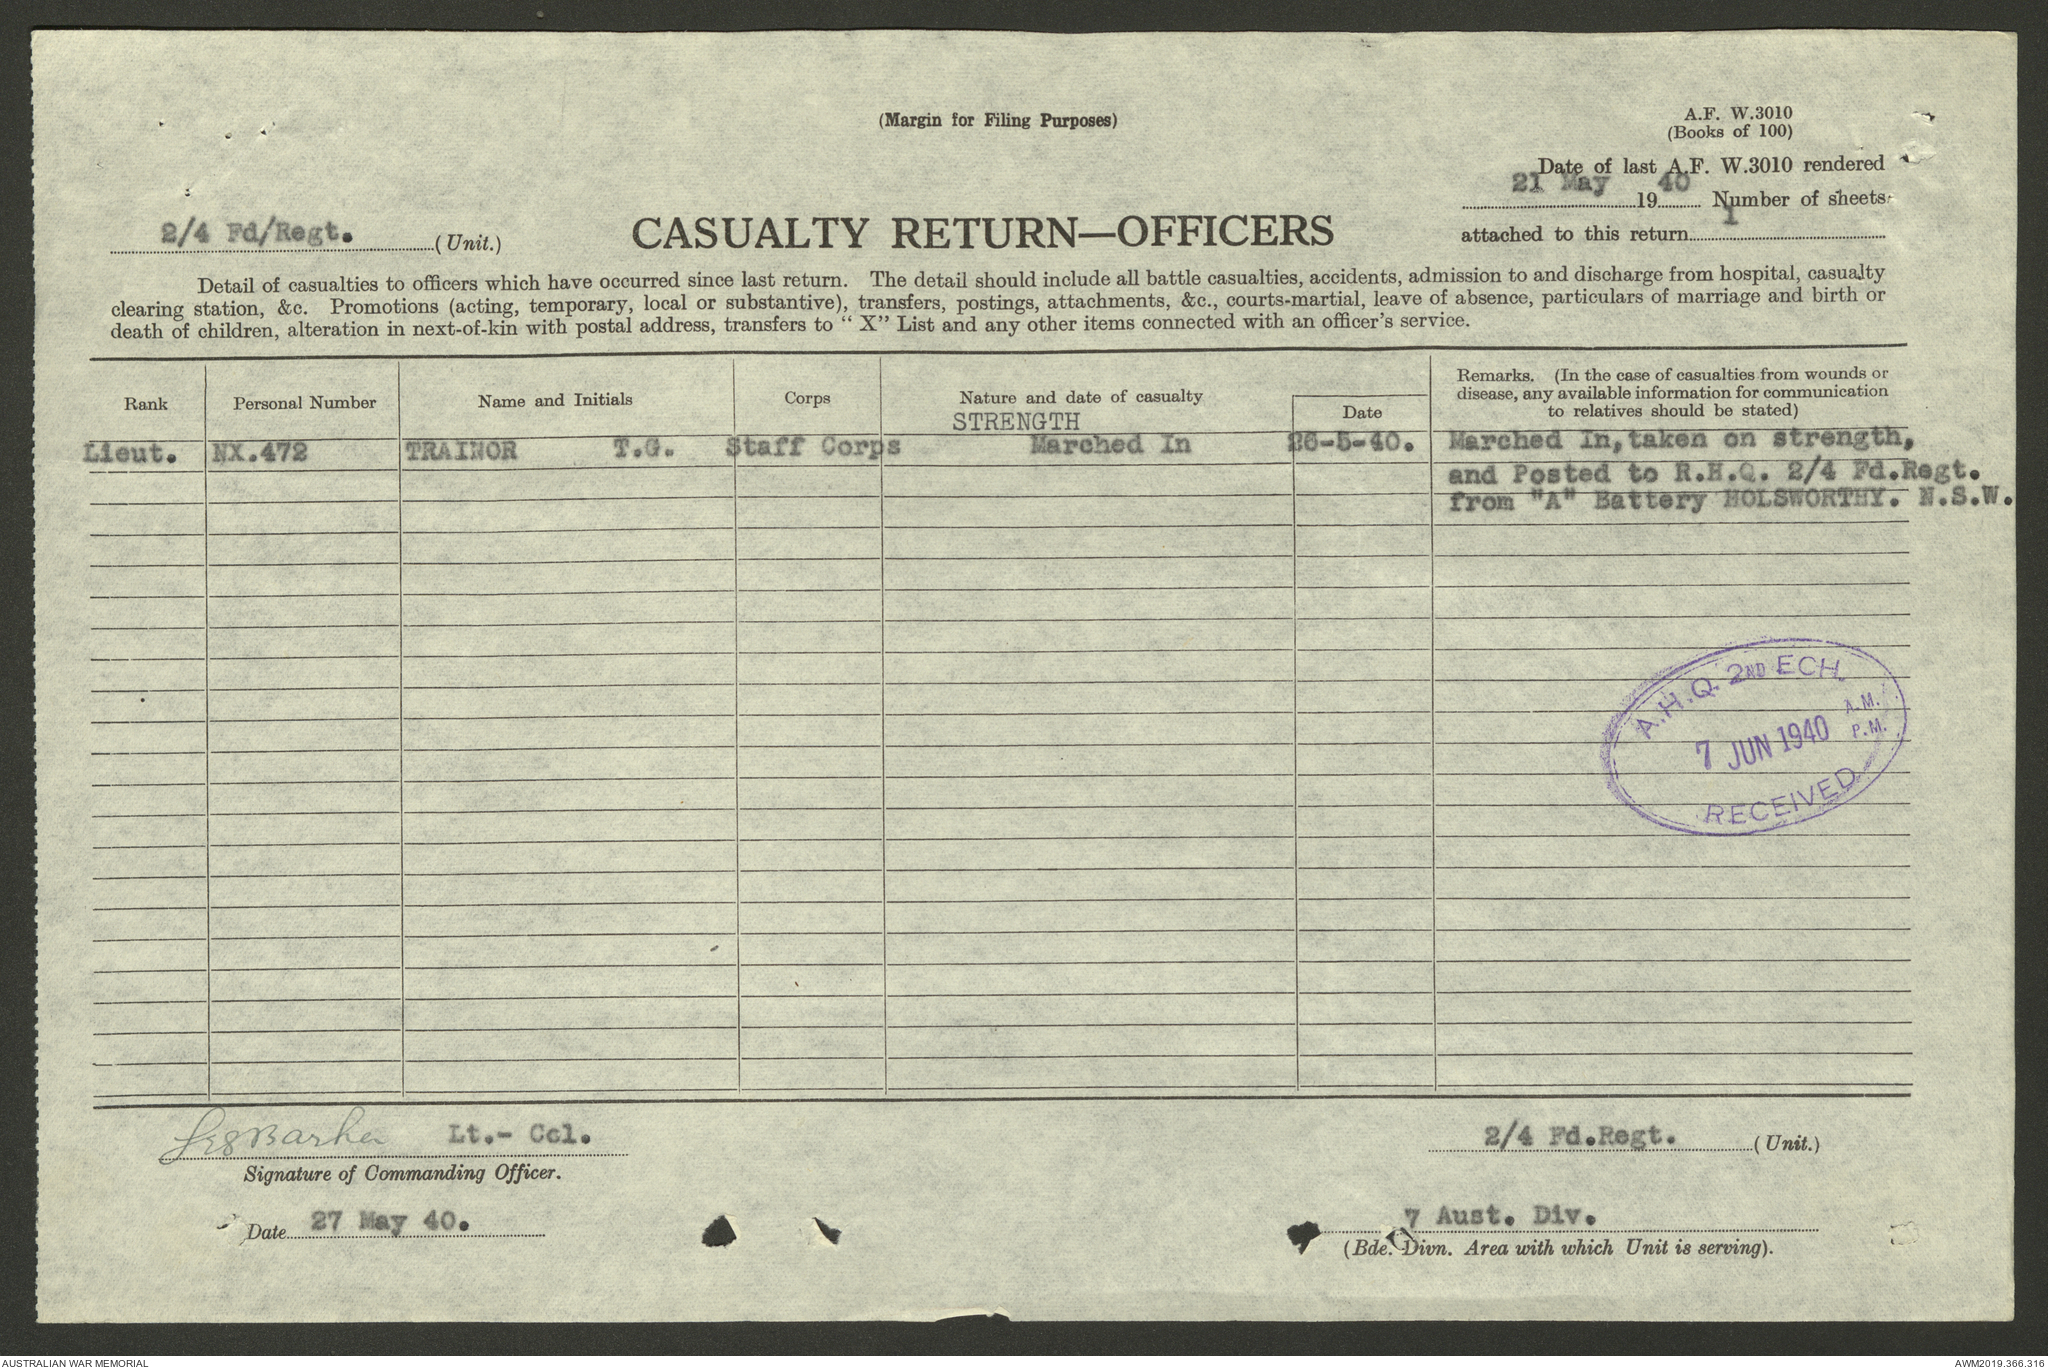 (Margin for Filing Purposes)
A.F. W.3010
(Books of 100)
Date of last A.F. W.3010 rendered
21 May 19 40 Number of sheets
attached to this return 1
2/4 Fd/Regt. (Unit.)
CASUALTY RETURN—OFFICERS
Detail of casualties to officers which have occurred since last return. The detail should include all battle casualties, accidents, admission to and discharge from hospital, casualty
clearing station, &c. Promotions (acting, temporary, local or substantive), transfers, postings, attachments, &c., courts-martial, leave of absence, particulars of marriage and birth or
death of children, alteration in next-of-kin with postal address, transfers to " X" List and any other items connected with an officer's service.
Rank Personal Number Name and Initials Corps Nature and date of casualty Date
Remarks. (In the case of casualties from wounds or
disease, any available information for communication
to relatives should be stated)
STRENGTH
Lieut. NX.472 TRAINOR T.G. Staff Corps Marched In 26-5-40. Marched In, taken on strength,
and Posted to R.H.Q. 2/4 Fd.Regt.
from "A" Battery HOLSWORTHY. N.S.W.
A.H.Q. 2ND ECH.
7 JUN 1940 A.M.
P.M.
RECEIVED
Barker Lt.- Col.
Signature of Commanding Officer.
2/4 Fd.Regt. (Unit.)
Date 27 May 40.
7 Aust. Div.
(Bde. Divn. Area with which Unit is serving).
AUSTRALIAN WAR MEMORIAL
AWM2019.366.316